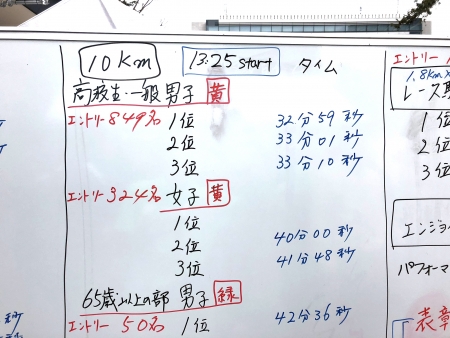 10Km 13:25 start タイム
高校生・一般 男子 黄
エントリー849名 1位 32分59秒
2位 33分01秒
3位 33分10秒
エントリー324名 女子 黄
1位
2位 40分00秒
3位 41分48秒
65歳以上の部 男子 緑
エントリー 50名 1位 42分36秒
秒
秒
エントリー
1.8Km
レース
1位
2位
3位
エンジョイ
パフォーマ
表彰